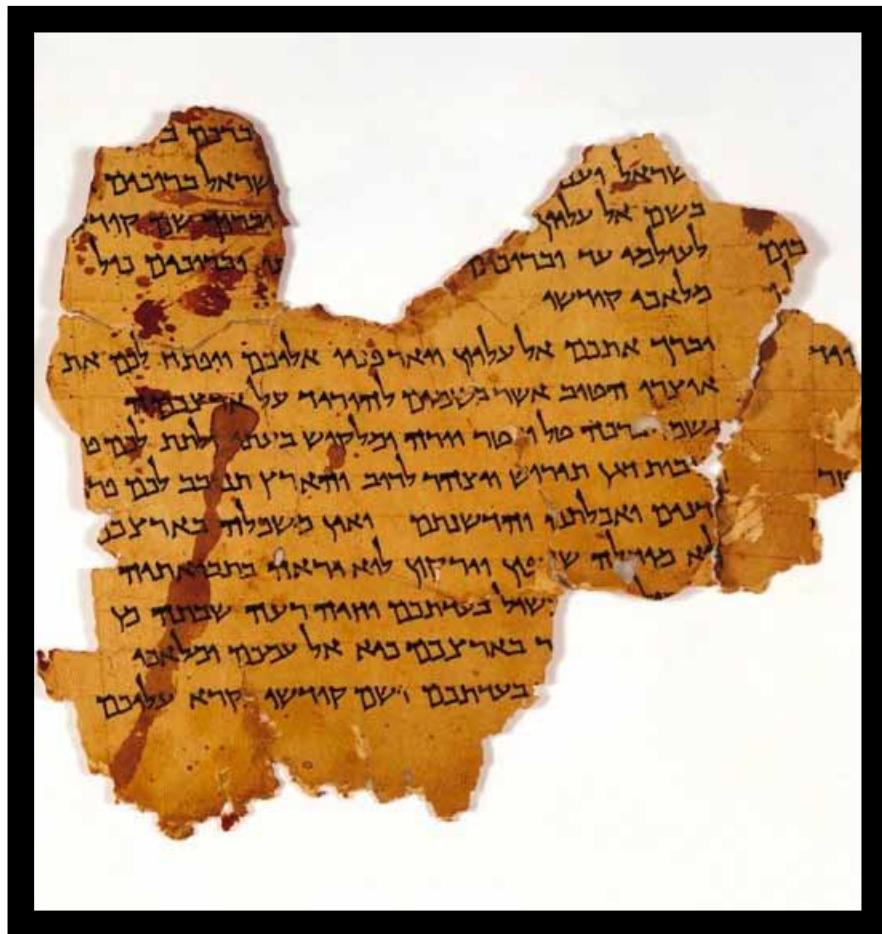 ברכם ב
שראל וענ שראל ברוכים
בשם אל עליון וברוך שם קודש
לעולמי עד וברוכים וברוכים כול
מלאכי קודשו
יברך אתכם אל עליון ויאר פניו אליכם ויפתח לכם את
אוצרו הטוב אשר בשמים להוריד על ארצכמה
גשמי ברכה טל ומטר יורה ומלקוש בעתו ולתת לכם
תירוש ויצהר לרוב והארץ תנובב לכם פרי
דנים ואכלתם והדשנתם ואין משכלה בארצכם
לא מוחלה שדפון וירקון לוא יראה בתבואתיה
שול בעדתכם וחיה רעה שבתה מן
ר בארצכם כיא אל עמכם ומלאכי
בעדתכם ושם קודשו נקרא עליכם